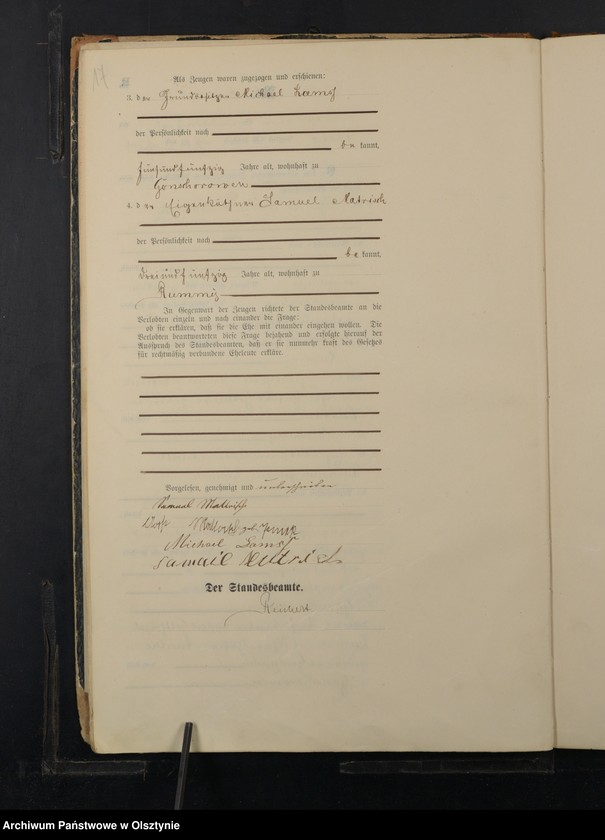 17
Als Zeugen waren zugezogen und erschienen:
3. der Grundbesitzer Michael
der Persönlichkeit nach
be kannt,
fünfundfünfzig Jahre alt, wohnhaft zu
Gonschorowen
4. der Eigenkäthner Samuel
der Persönlichkeit nach
be kannt,
dreiundfünfzig Jahre alt, wohnhaft zu
In Gegenwart der Zeugen richtete der Standesbeamte an die
Verlobten einzeln und nach einander die Frage:
ob sie erklären, daß sie die Ehe mit einander eingehen wollen. Die
Verlobten beantworteten diese Frage bejahend und erfolgte hierauf der
Ausspruch des Standesbeamten, daß er sie nunmehr kraft des Gesetzes
für rechtmäßig verbundene Eheleute erkläre.
Vorgelesen, genehmigt und unterschrieben
Michael
Der Standesbeamte.
Archiwum Państwowe w Olsztynie